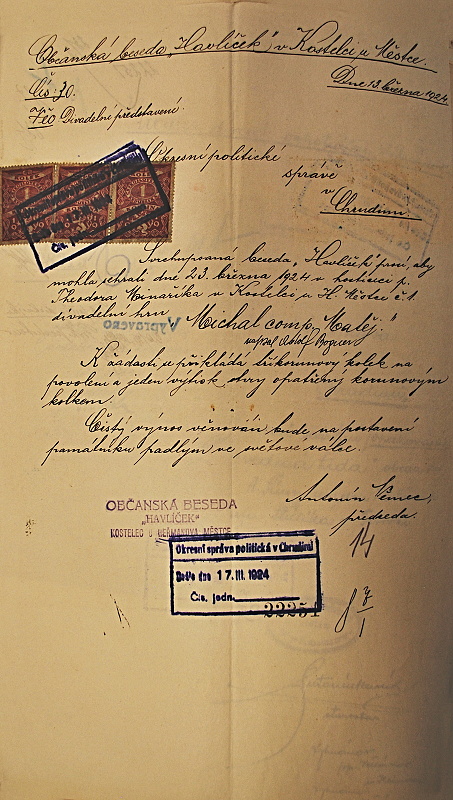 Občanská beseda „Havlíček" v Kostelci u Městce.
Dne 13. března 1924
Čís: 30.
Divadelní představení.
Okresní politické
správě
v
Chrudimi.
Svrchupsaná beseda, Havlíček prosí, aby
mohla sehrati dne 23. března 1924 v hostinci p.
Theodora Minaříka v Kostelci u H. Městce č. 1.
divadelní hru „Michal comp. Matěj."
napsal Adolf Bogner
VYPRAVENO
K žádosti se přikládá korunový kolek na
povolení a jeden výtisk hry opatřený korunovým
kolkem.
Čistý výnos věnován bude na postavení
památníku padlým ve světové válce.
Antonín Němec,
předseda.
OBČANSKÁ BESEDA
„HAVLÍČEK"
KOSTELEC U HEŘMANOVA MĚSTCE
Okresní správa politická v Chrudimi
Došlo dne 17. III. 1924
Čís. jedn.
22251